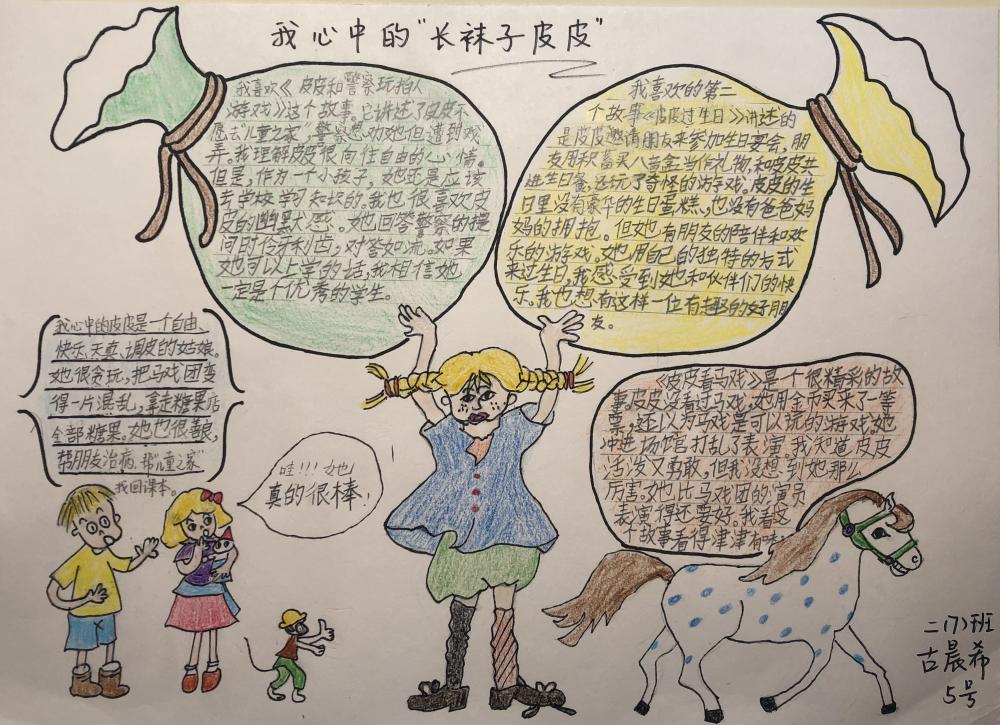 我心中的“长袜子皮皮”
我喜欢《皮皮和警察玩拍人
游戏》这个故事。它讲述了皮皮不
愿去儿童之家,警察想劝她但遭到戏
弄。我理解皮皮很向往自由的心情。
但是,作为一个小孩子,她还是应该
去学校学习知识的。我也很喜欢皮
皮的幽默感。她回答警察的提
问时伶牙利齿,对答如流。如果
她可以上学的话,我相信她
一定是个优秀的学生。
我喜欢的第二
个故事《皮皮过生日》讲述的
是皮皮邀请朋友来参加生日宴会,朋
友用积蓄买八音盒当作礼物,和皮皮共
进生日餐,还玩了奇怪的游戏。皮皮的生
日里没有豪华的生日蛋糕,也没有爸爸妈
妈的拥抱。但她有朋友的陪伴和欢
乐的游戏。她用自己的独特的方式
来过生日,我感受到她和伙伴们的快
乐。我也想有这样一位有趣的好朋
友。
我心中的皮皮是一个自由、
快乐、天真、调皮的姑娘。
她很贪玩,把马戏团变
得一片混乱,拿走糖果店
全部糖果。她也很善良,
帮朋友治病、帮“儿童之家”
找回课本。
哇!!!她
真的很棒!
《皮皮看马戏》是一个很精彩的故
事。皮皮没看过马戏,她用金币买来了一等
票,还以为马戏是可以玩的游戏,她
冲进场馆打乱了表演。我知道皮皮
活泼又勇敢,但我没想到她那么
厉害。她比马戏团的演员
表演得还要好。我看这
个故事看得津津有味
二(7)班
古晨希
5号